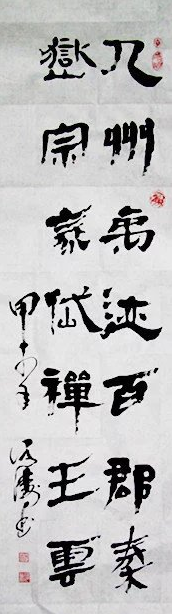 九州禹迹百郡秦
嶽宗泰岱禪主雲
甲午年